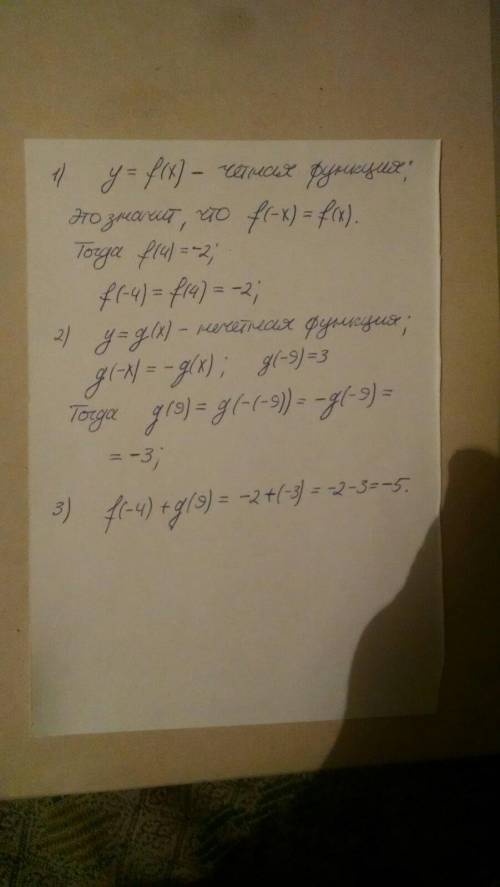 1) y = f(x) - четная функция;
это значит, что f(-x) = f(x).
Тогда f(4) = -2;
f(-4) = f(4) = -2;
2) y = g(x) - нечетная функция;
g(-x) = -g(x); g(-9) = 3
Тогда g(9) = g(-(-9)) = -g(-9) =
= -3;
3) f(-4) + g(9) = -2+(-3) = -2-3=-5.